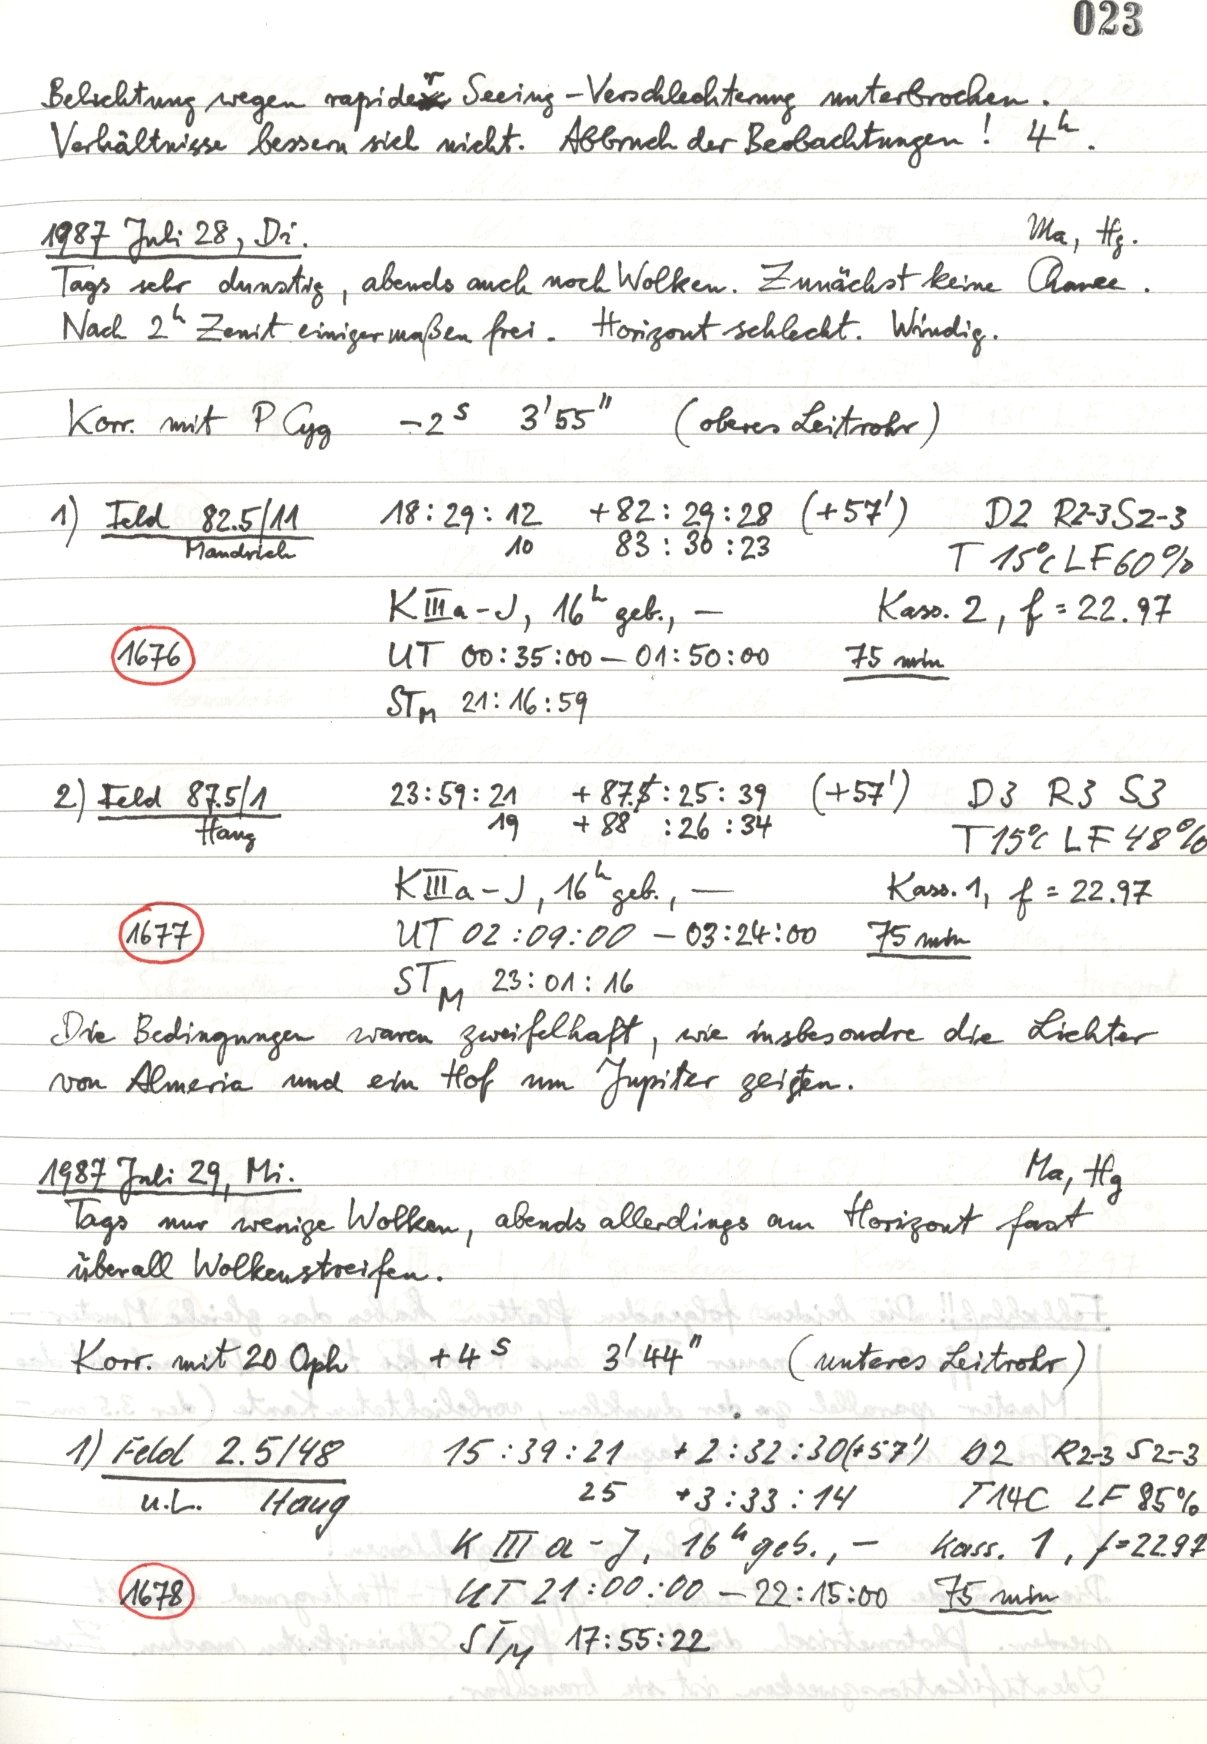 023
Belichtung wegen rapider Seeing-Verschlechterung unterbrochen.
Verhältnisse bessern sich nicht. Abbruch der Beobachtungen! 4h.
1987 Juli 28, Di. Ma, Hg.
Tags sehr dunstig, abends auch noch Wolken. Zunächst keine Chance.
Nach 2h Zenit einigermaßen frei. Horizont schlecht. Windig.
Korr. mit P Cyg -2s 3'55" (oberes Leitrohr)
1) Feld 82.5/11 18:29:12 +82:29:28 (+57') D2 R2-3 S2-3
Mandrich 10 83:30:23 T 15°C LF 60%
K III a-J, 16h geb., — Kass. 2, f = 22.97
1676 UT 00:35:00 – 01:50:00 75 min
STM 21:16:59
2) Feld 87.5/1 23:59:21 +87:25:39 (+57') D3 R3 S3
Haug 19 +88:26:34 T 15°C LF 48%
K III a-J, 16h geb., — Kass. 1, f = 22.97
1677 UT 02:09:00 – 03:24:00 75 min
STM 23:01:16
Die Bedingungen waren zweifelhaft, wie insbesondre die Lichter
von Almeria und ein Hof um Jupiter zeigten.
1987 Juli 29, Mi. Ma, Hg
Tags nur wenige Wolken, abends allerdings am Horizont fast
überall Wolkenstreifen.
Korr. mit 20 Oph +4s 3'44" (unteres Leitrohr)
1) Feld 2.5/48 15:39:21 +2:32:30 (+57') D2 R2-3 S2-3
u.L. Haug 25 +3:33:14 T 14C LF 85%
K III a-J, 16h geb., – Kass. 1, f=22.97
1678 UT 21:00:00 – 22:15:00 75 min
STM 17:55:22